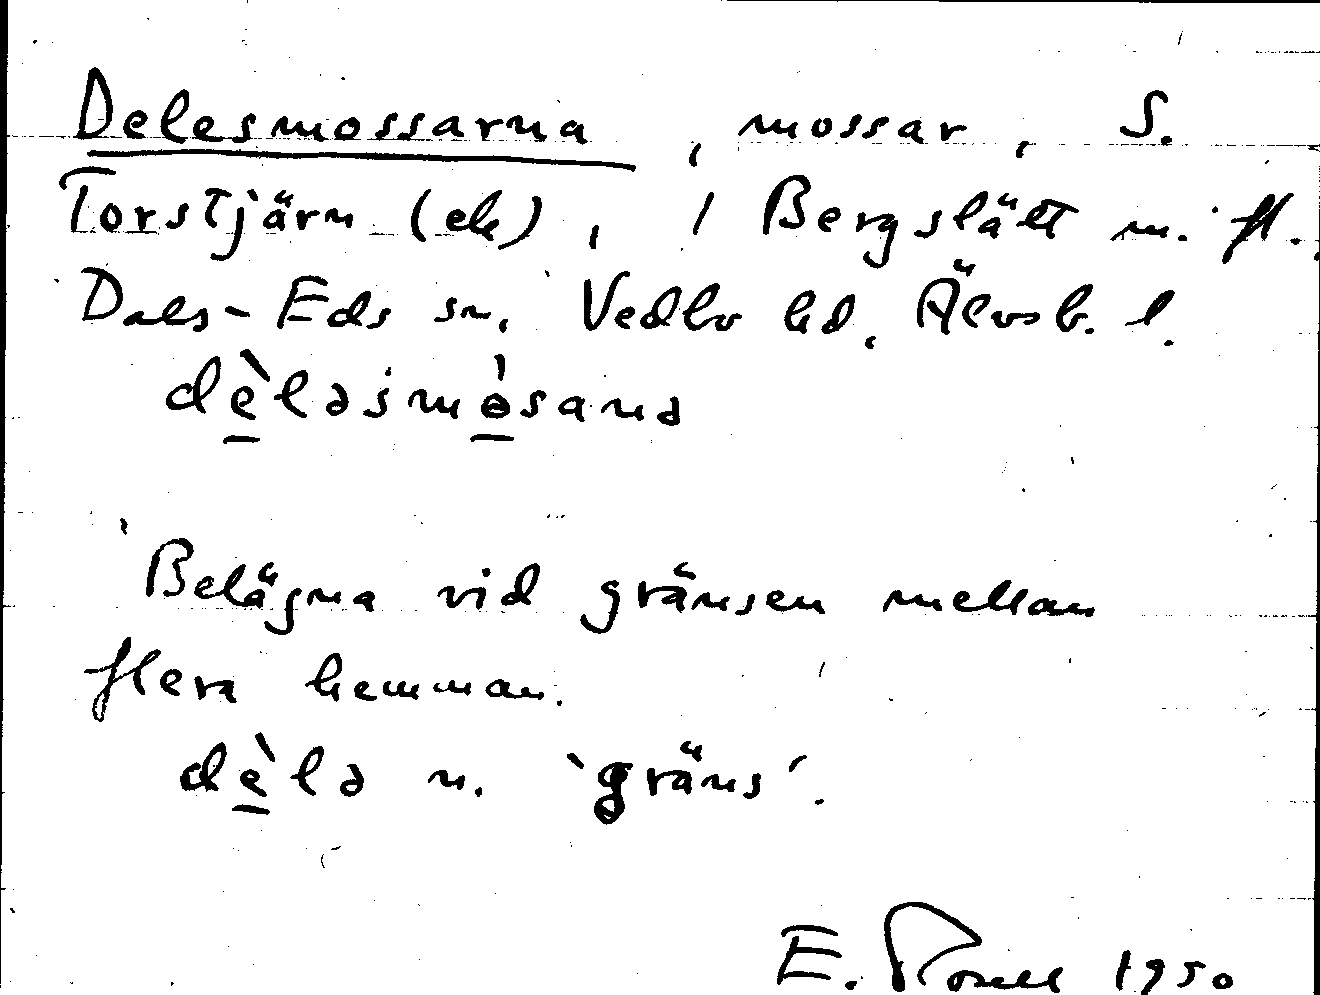 Delesmossarna, mossar, S.
Torstjärn (ek), / Bergslätt m. fl.
Dals-Eds sn, Vedbo hd, Älvsb. l.
dè̱ləsmòsanə

Belägna vid gränsen mellan
flera hemman.
dè̱lə n. 'gräns'.
E. Rosell 1950